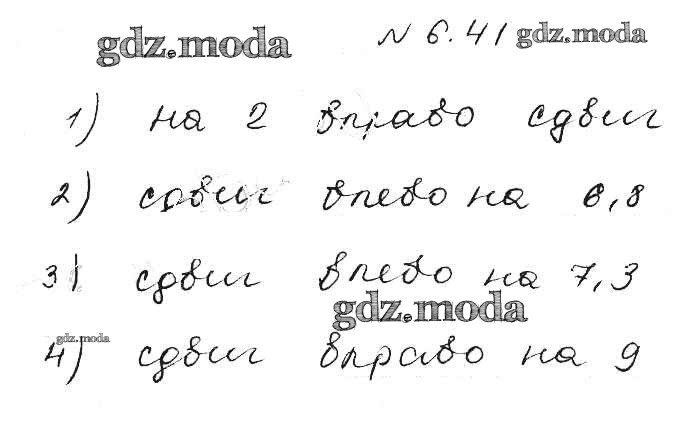 gdz.moda № 6.41 gdz.moda
1) на 2 вправо сдвиг
2) сдвиг влево на 6,8
3) сдвиг влево на 7,3
gdz.moda
gdz.moda
4) сдвиг вправо на 9